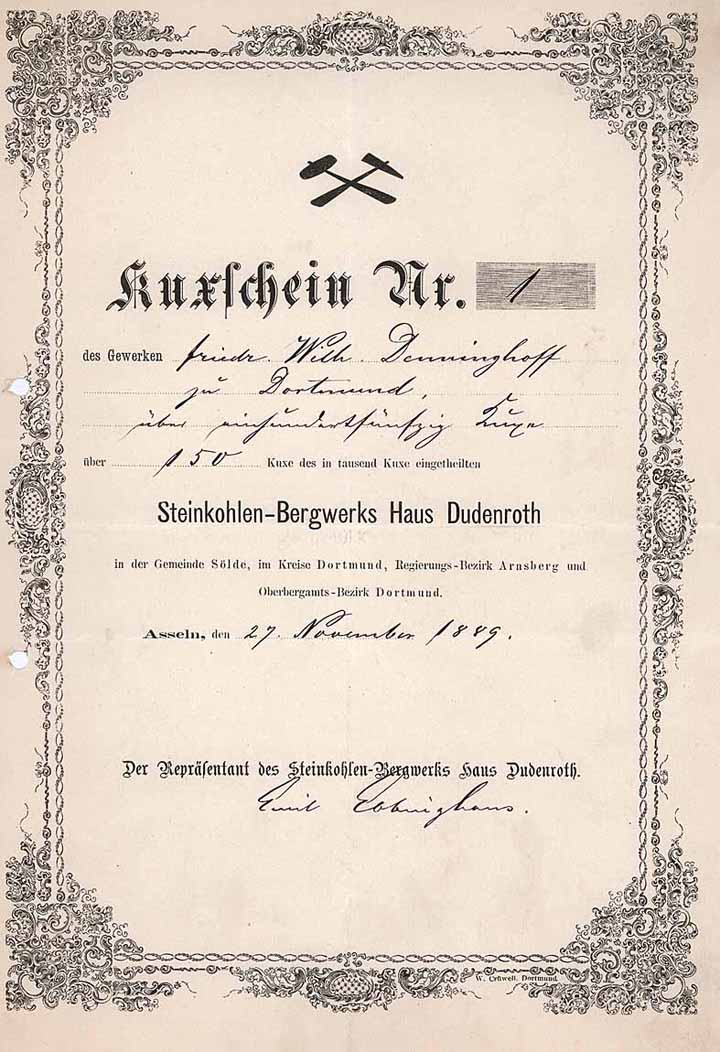 Kuxschein Nr. 1
des Gewerken Friedr. Wilh. Denninghoff
zu Dortmund,
über einhundertfünfzig Kuxe
über 150 Kuxe des in tausend Kuxe eingetheilten
Steinkohlen-Bergwerks Haus Dudenroth
in der Gemeinde Sölde, im Kreise Dortmund, Regierungs-Bezirk Arnsberg und
Oberbergamts-Bezirk Dortmund.
Asseln, den 27. November 1889.
Der Repräsentant des Steinkohlen-Bergwerks Haus Dudenroth.
Emil
W. Crüwell, Dortmund